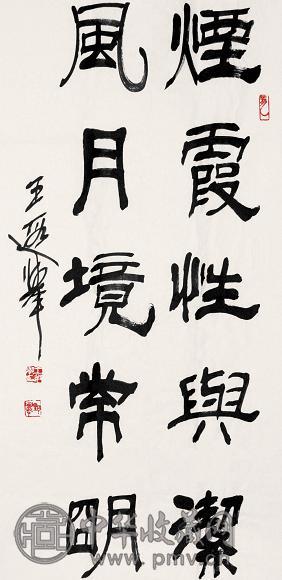 煙霞性與潔
風月境常明
王遐舉
中华收藏网
www.pmv.cn